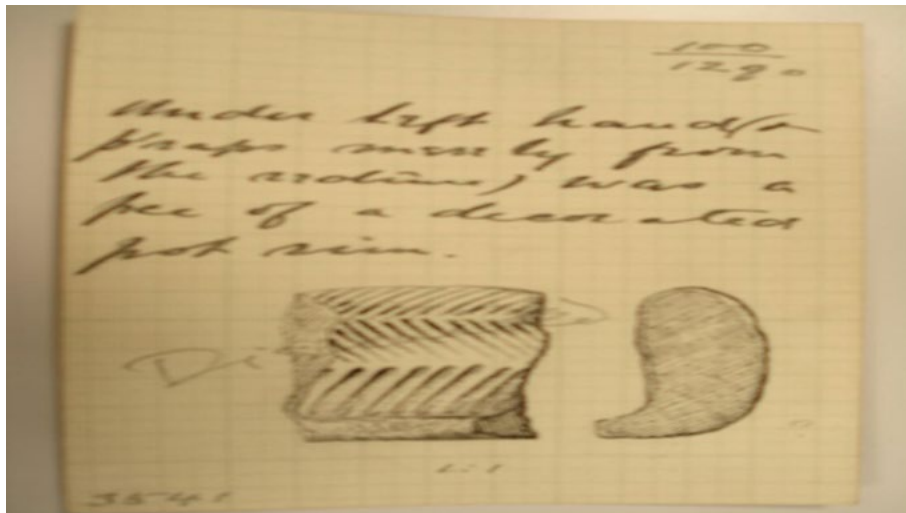 100
1290
Under left hand (or
p'raps merely from
the radius) was a
pce of a decorated
pot rim.
1:1
3541